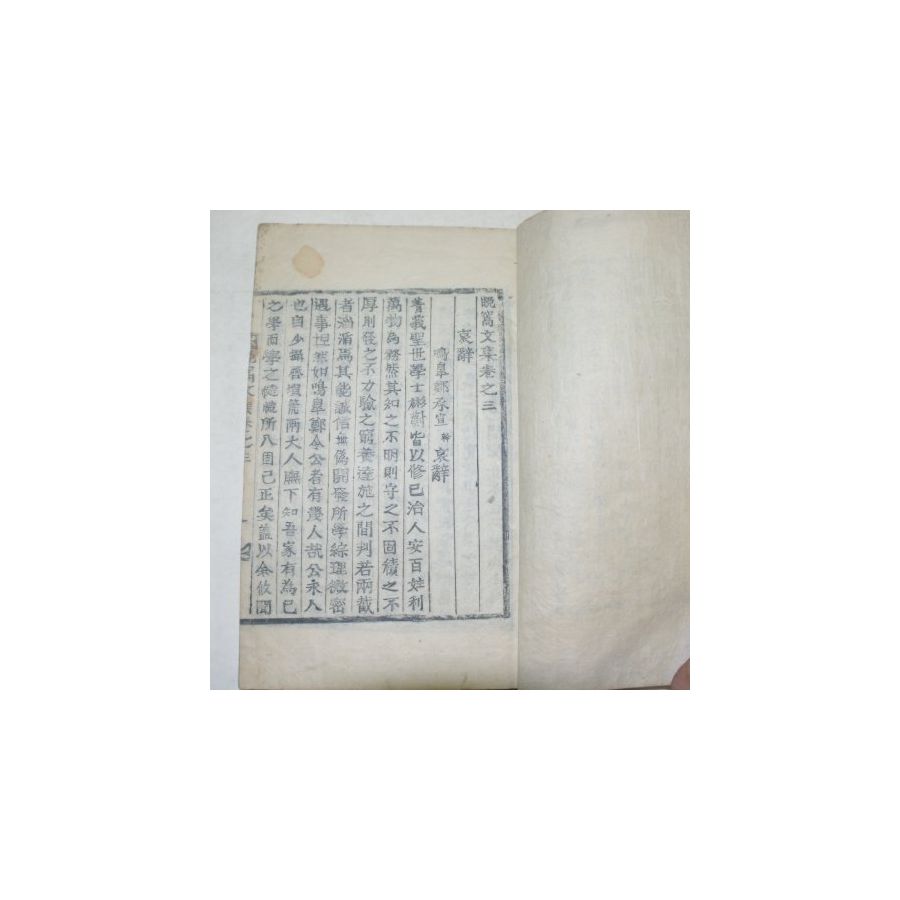 晩窩文集卷之三
哀辭
鳴皐鄭承宣 幹 哀辭
昔義聖世學士彬彬皆以修己治人安百姓利
萬物爲務然其知之不明則守之不固積之不
厚則發之不力驗之窮養達施之間判若兩截
者滔滔焉其能誠信無僞開發所學綜理微密
遇事坦然如鳴皐鄭令公者有幾人哉公永人
也自少攝齊塤篪兩大人廡下知吾家有爲己
之學而學之蹊逕所入固己正矣蓋以余攸聞